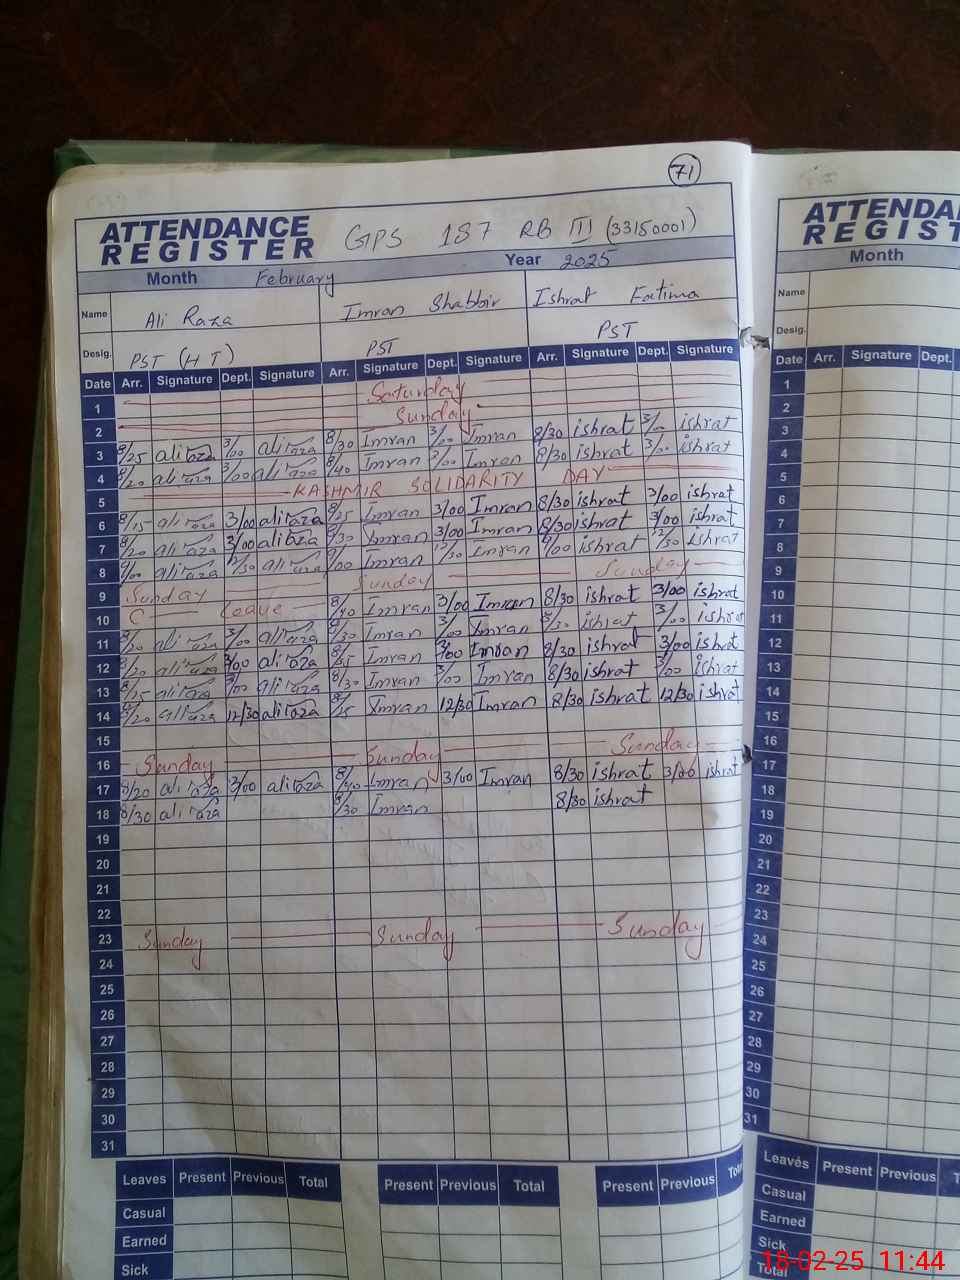 71
ATTENDANCE REGISTER GPS 187 RB III (33150001)
Month February Year 2025
Name Ali Raza Imran Shabbir Ishrat Fatima
Desig. PST (H T) PST PST
Date Arr. Signature Dept. Signature Arr. Signature Dept. Signature Arr. Signature Dept. Signature
1 Saturday
2 Sunday
3 8/25 aliraza 3/00 aliraza 8/30 Imran 3/00 Imran 8/30 ishrat 3/00 ishrat
4 8/20 aliraza 3/00 aliraza 8/40 Imran 3/00 Imran 8/30 ishrat 3/00 ishrat
5 KASHMIR SOLIDARITY DAY
6 8/15 aliraza 3/00 aliraza 8/25 Imran 3/00 Imran 8/30 ishrat 3/00 ishrat
7 8/20 aliraza 3/00 aliraza 8/30 Imran 3/00 Imran 8/30 ishrat 3/00 ishrat
8 9/00 aliraza 12/30 aliraza 9/00 Imran 12/30 Imran 9/00 ishrat 12/30 ishrat
9 Sunday Sunday Sunday
10 C Leave 8/40 Imran 3/00 Imran 8/30 ishrat 3/00 ishrat
11 8/20 aliraza 3/00 aliraza 8/30 Imran 3/00 Imran 8/30 ishrat 3/00 ishrat
12 8/20 aliraza 3/00 aliraza 8/25 Imran 3/00 Imran 8/30 ishrat 3/00 ishrat
13 8/25 aliraza 3/00 aliraza 8/30 Imran 3/00 Imran 8/30 ishrat 3/00 ishrat
14 8/20 aliraza 12/30 aliraza 8/25 Imran 12/30 Imran 8/30 ishrat 12/30 ishrat
15
16 Sunday Sunday Sunday
17 8/20 aliraza 3/00 aliraza 8/40 Imran 3/00 Imran 8/30 ishrat 3/00 ishrat
18 8/30 aliraza 8/30 Imran 8/30 ishrat
19
20
21
22
23 Sunday Sunday Sunday
24
25
26
27
28
29
30
31
Leaves Present Previous Total Present Previous Total Present Previous Total
Casual
Earned
Sick
ATTENDA
REGIST
Month
Name
Desig.
Date Arr. Signature Dept.
1
2
3
4
5
6
7
8
9
10
11
12
13
14
15
16
17
18
19
20
21
22
23
24
25
26
27
28
29
30
31
Leaves Present Previous T
Casual
Earned
Sick
Total
18-02-25 11:44